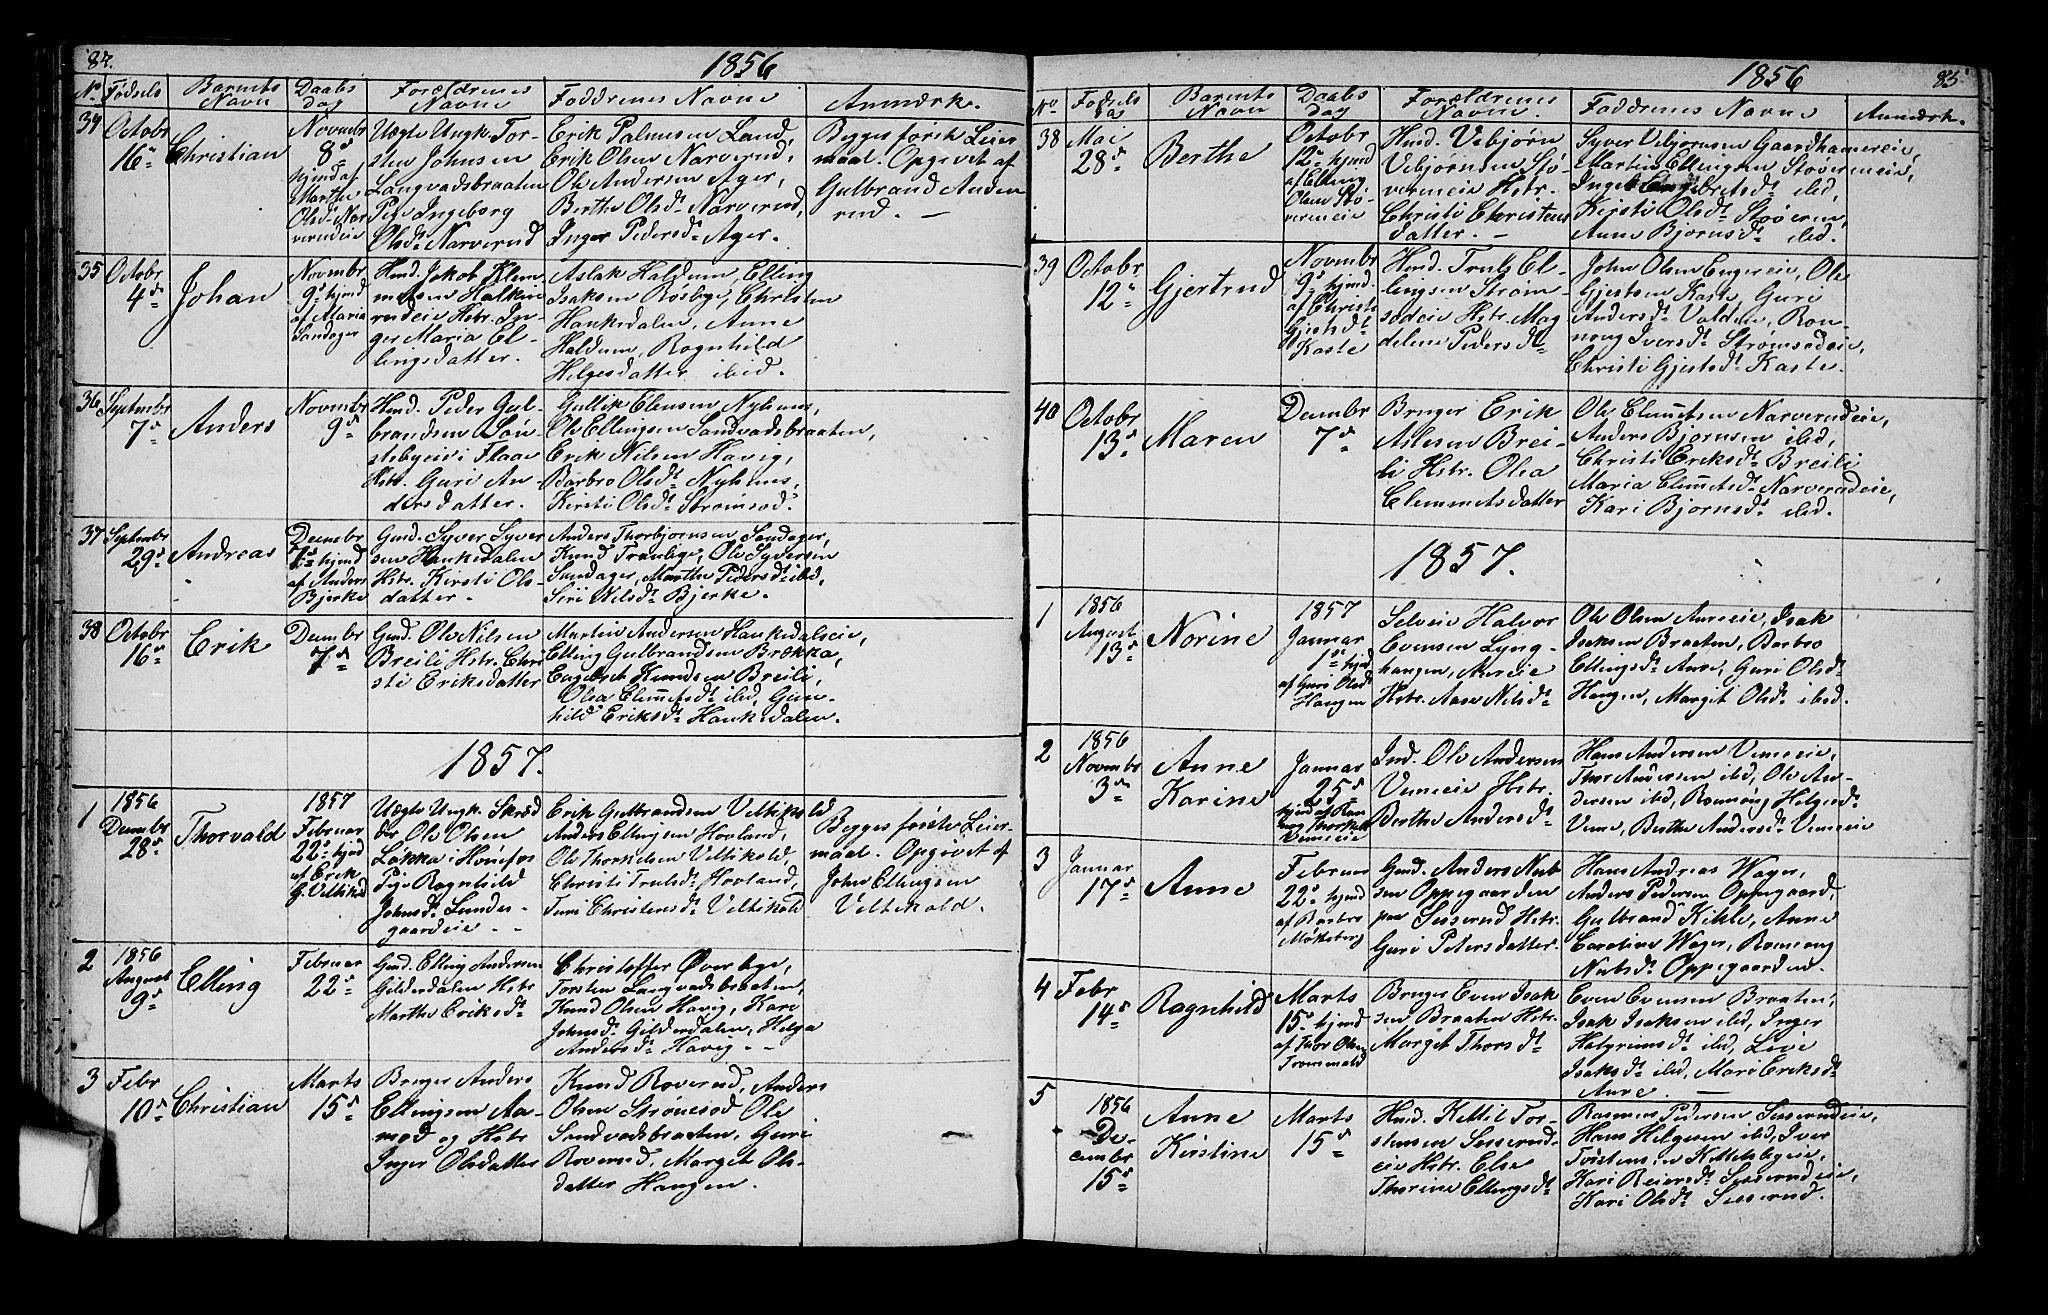 84.
1856
No Fødsels Barnets Navn Daabs dag Forældrenes Navne Faddrenes Navne Anmærk.
34 Octobr 16de Christian
Novembr 8de hjemd af Marthe Olsdr Narverudeie
Uægte Ungk. Tor-
sten Johnsen
Langvadsbraaten
Pige Ingeborg
Olsdr Narverud
Erik Paulsen Land,
Erik Olsen Narverud,
Ole Andersen Ager,
Berthe Olsdr Narverud,
Inger Pedersdr Ager.
Begges første Leier-
maal. Opgivet af
Gulbrand Anden
rud. —
35 Octobr 4de Johan
Novembr 9de hjemd af Maria Sandager
Huusd. Jakob Klem
metsen
Hstr. In-
ger Maria El-
lingsdatter.
Aslak Haldum, Elling
Isaksen Rösbye, Christen
Hauksdalen, Anne
Haldum, Ragnhild
Helgesdatter ibid.
36 Septembr 7de Anders
Novembr 9de
Huusd. Peder Gul-
brandsen Søn-
stebyeie i Flaa
Hstr. Guri An-
dersdatter.
Gullik Clausen Nyhuus,
Ole Ellingsen Sandvadsbraaten,
Erik Nilsen Havig,
Barbro Olsdr Nyhuus,
Kirsti Olsdr Strømsod.
37 Septembr 29de Andreas
Decembr 7de hjemd af Anders Bjerke
Gmd. Syver Syver
sen Hauksdalen
Hstr. Kirsti Ols-
datter.
Anders Thorbjornsen Sandager,
Knud Tranbye, Ole Syversen
Sandager, Marthe Pedersdr ibid,
Siri Nilsdr Bjerke.
38 Octobr 16de Erik
Decembr 7de
Gmd. Ole Nilsen
Breili Hstr. Chri
sti Eriksdatter
Martin Andersen Hauksdalseie,
Elling Gulbrandsen Brækka,
Engebret Knudsen Breili,
Olea Clemetsdr ibid, Gun-
hild Eriksdr Hauksdalen.
1857.
1 1856 Decembr 28de Thorvald
1857 Februar 22de hjemd af Erik G. Veltikold
Uægte Ungk. Skræd
der Ole Olsen
Løkka i Hønefos
Pige Ragnhild
Johnsdr Lunder-
gaardeie - -
Erik Gulbrandsen Veltikold
Anders Ellingsen Hovland,
Ole Thorkelsen Veltikold,
Christi Trulsdr Hovland,
Turi Christensdr Veltikold
Begges første Leier-
maal. Opgivet af
John Ellingsen
Veltikold.
2 1856 August 9de Elling
Februar 22de
Gmd. Elling Andersen
Gilderdalen Hstr
Marthe Eriksdr
Christoffer Øverbye,
Torsten Langvadsbraaten,
Knud Olsen Havig, Kari
Johnsdr Gilderdalen, Helga
Andersdr Havig. - -
3 Febr 10de Christian
Marts 15de
Bruger Anders
Ellingsen Aa-
mod og Hstr
Inger Olsdatter
Knud Roverud, Anders
Olsen Strømsod Ole
Sandvadsbraaten, Guri
Roverud, Marget Ols-
datter Haugen.
1856
85
No Fødsels Barnets Navn Daabs dag Forældrenes Navne. Faddrenes Navne Anmærk.
38 Mai 28de Berthe
Octobr 12te hjemd af Elling Olsen Stø-
vereneie
Huusd. Vebjørn
Vebjørnsen Stø-
vereneie Hstr.
Christi Christens
datter. —
Syver Vebjørnsen Gaardhamereie,
Martin Ellingsen Støvereneie,
Inger Engebretsdr ibid.
Kirsti Olsdr Støveren,
Anne Bjornsdr ibid.
39 Octobr 12te Gjertrud
Novembr 9de hjemd af Christi Gjestsdr Kaste
Huusd. Truls El-
lingsen Strøm-
sodeie Hstr. Mag
delene Pedersdr
John Olsen Engereie, Ole
Gjestsen Kaste, Guri
Andersdr Valden, Ron-
noug Iversdr Strømsodeie,
Christi Gjestsdr Kaste.
40 Octobr 13de Maren
Decembr 7de
Bruger Erik
Aslesen Brei-
li Hstr. Olea
Clemmetsdatter
Ole Clemetsen Narverudeie,
Anders Bjornsen ibid,
Christi Eriksdr Breili
Maria Clemetsdr Narverudeie,
Kari Bjornsdr ibid.
1857.
1 1856 August 13de Norine
1857 Januar 1ste hjemd af Guri Olsdr Haugen
Selveie Halvor
Evensen Lyng-
haugen, Aureie
Hstr. Aase Nilsdr
Ole Olsen Aureeie, Isak
Isaksen Braaten, Barbro
Ellingsdr Aure, Guri Olsdr
Haugen, Margit Olsdr ibid.
2 1856 Novembr 3de Anne Karine
Januar 25de
Ind. Ole Andersen
Vemeeie Hstr.
Berthe Andersdr
Hans Andersen Vemeeie,
Thor Andersen ibid, Ole An-
dersen ibid, Rønnoug Helgesdr
Veme, Berthe Andersdr Vemeeie
3 Januar 17de Anne
Februar 22de hjemd af Barbro Møkeberg
Gmd. Anders Nub-
sen Oppegaarden
paa Sesserud Hstr.
Guri Petersdatter.
Hans Andreas Wager,
Anders Pedersen Oppegaard,
Gulbrand Kihle, Anne
Caroline Wager, Rønnoug
Nubsdr Oppegaarden.
4 Febr 14de Ragnhild
Marts 15de hjemd af Thor Olsen Trommald
Bruger Even Isak
sen Braaten Hstr.
Marget Thorsdr
Even Evensen Braaten,
Isak Isaksen ibid, Inger
Halgrimsdr ibid, Live
Isaksdr ibid, Mari Eriksdr
Aure. —
5 1856 De-
cembr 15de Anne Kirstine
Marts 15de
Huusd. Kittil Tor-
stensen Sesserud-
eie Hstr. Else
Thorine Ellingsdr
Rasmus Pedersen Sesserudeie,
Hans Helgesen ibid, Iver
Torstensen Kittilsbyeie,
Kari Reiersdr Sesserudeie,
Kari Olsdr Sesserud.